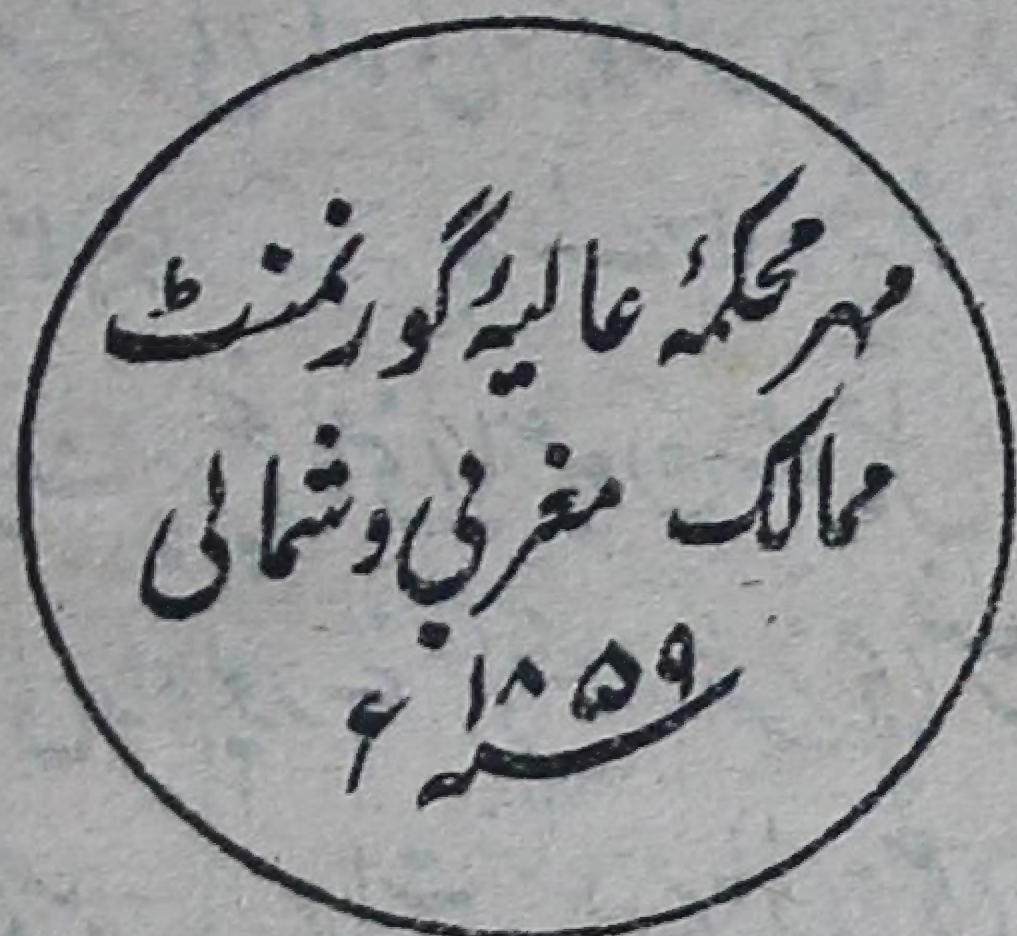 مہر محکمۂ عالیۂ گورنمنٹ
ممالک مغربی و شمالی
سنہ ۱۸۵۹ء